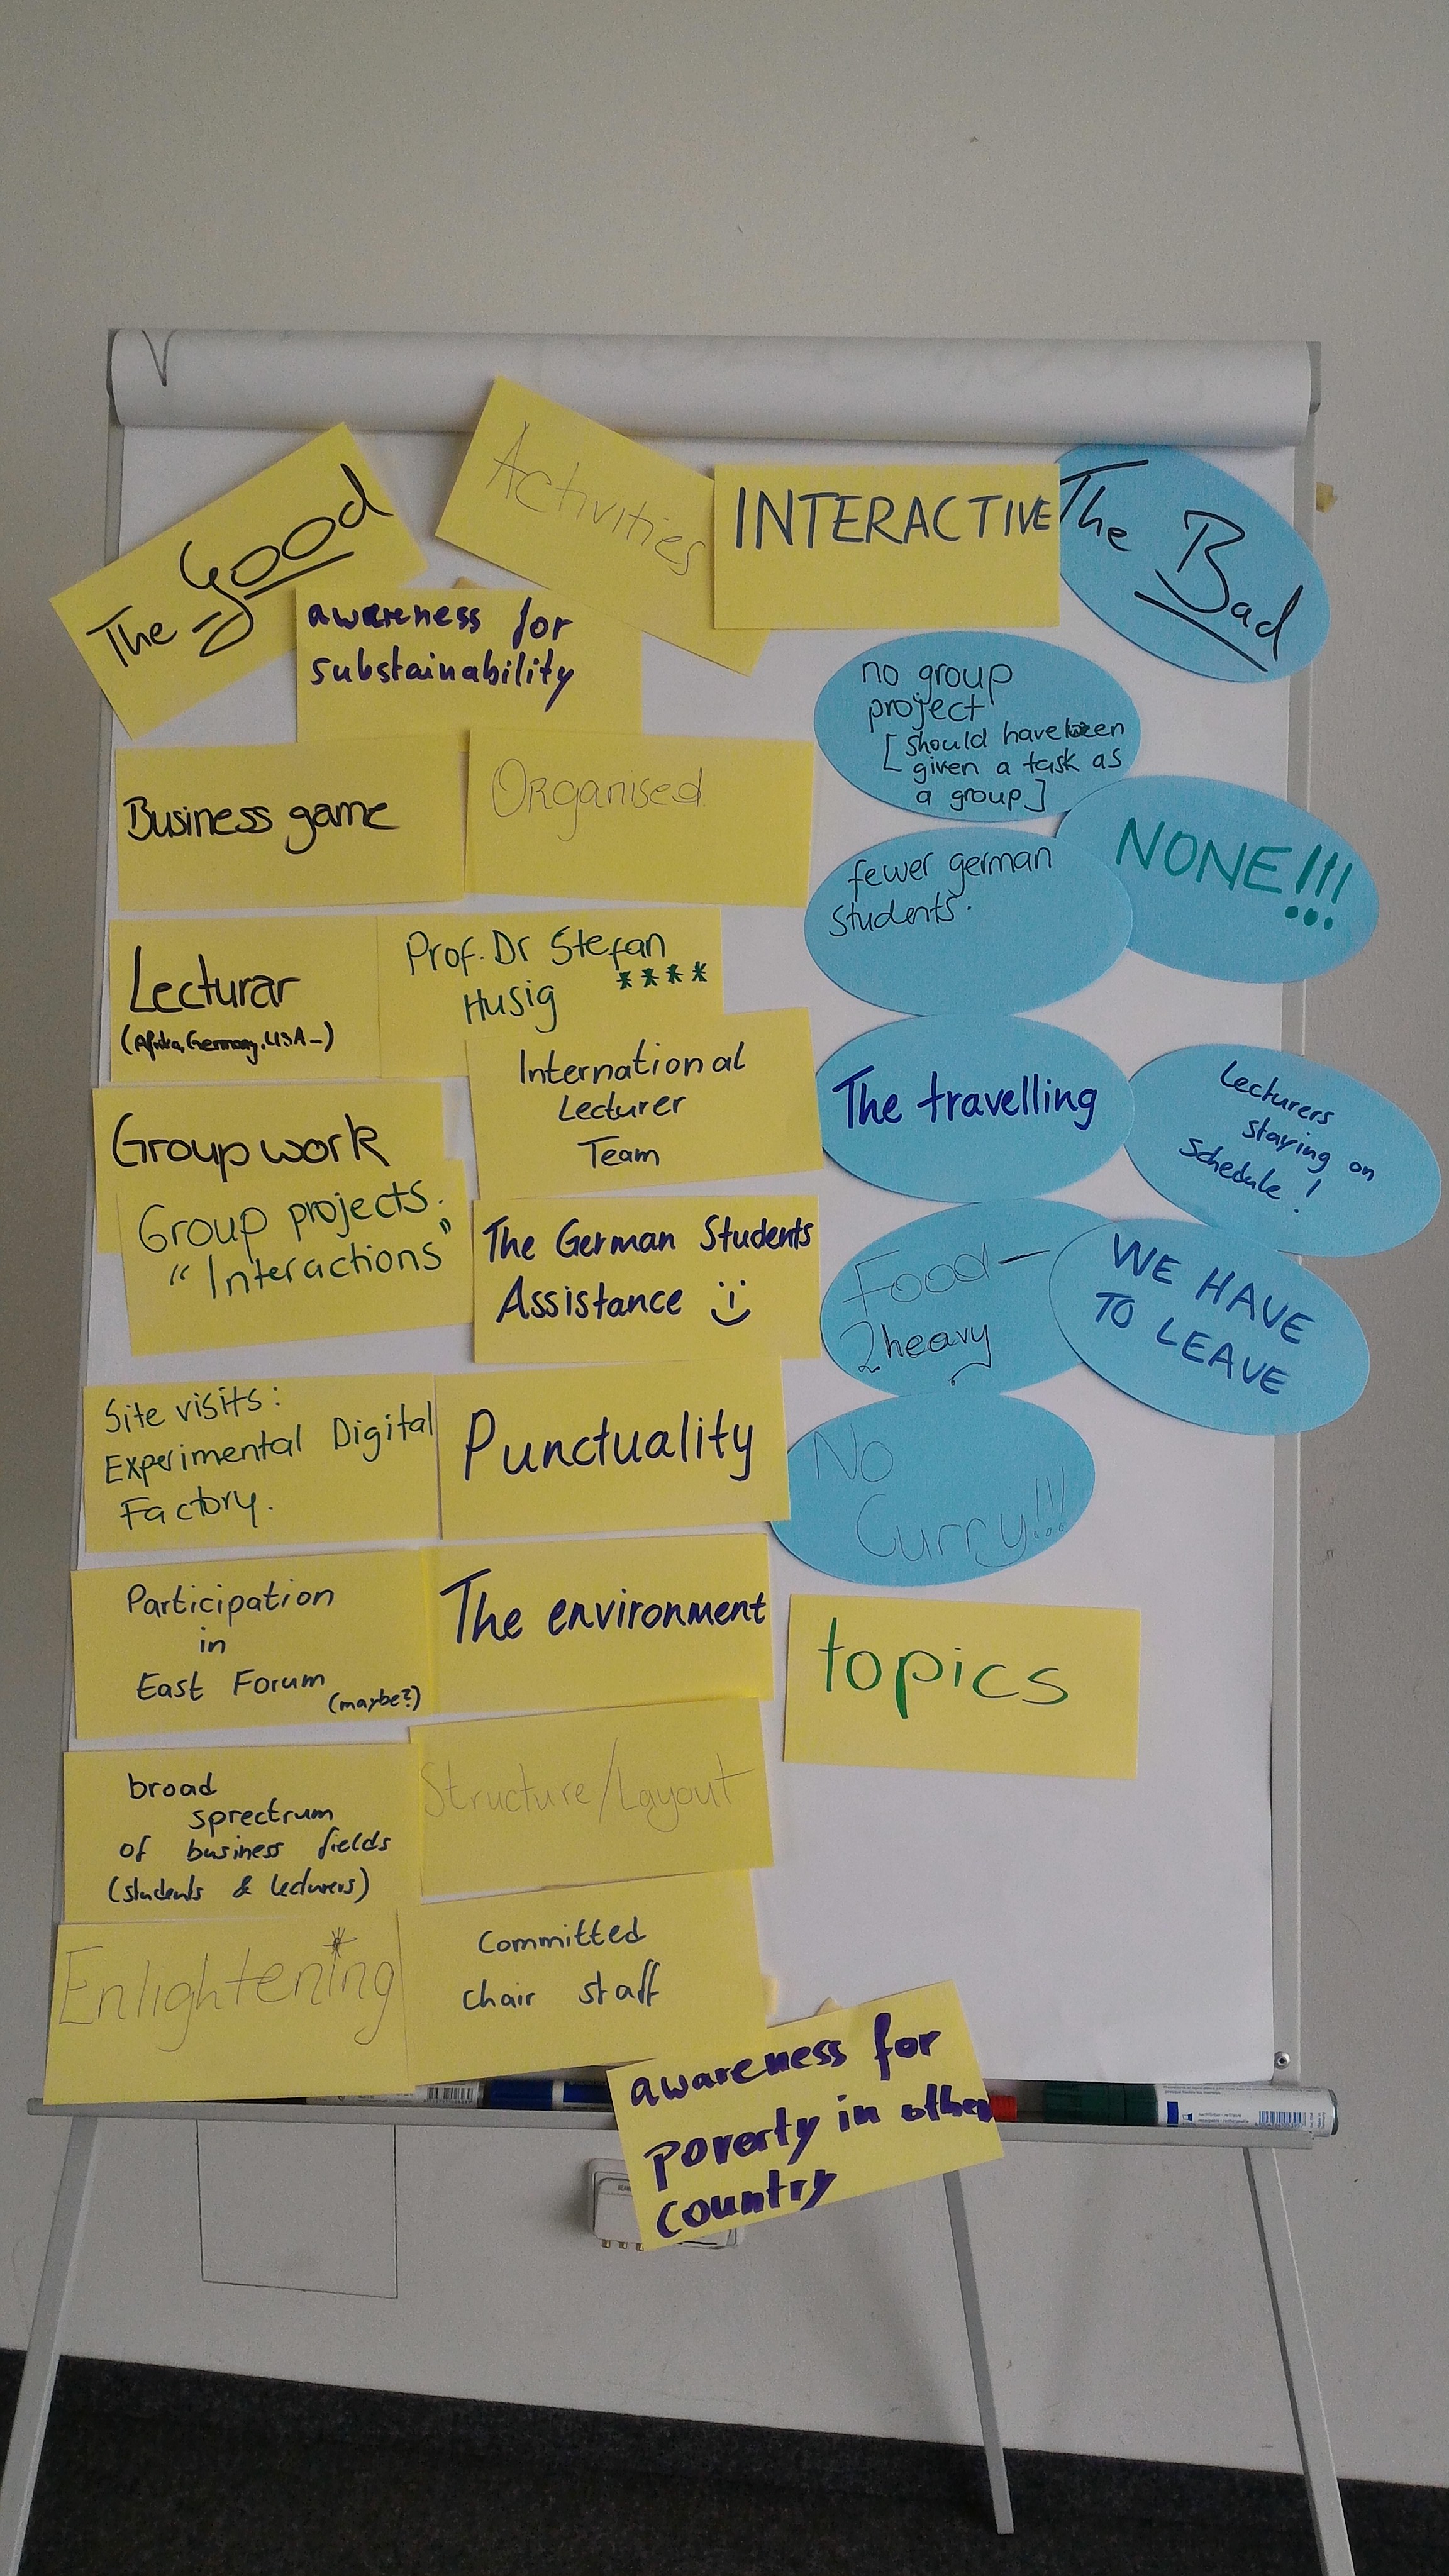 The Good
Activities
INTERACTIVE
awareness for
substainability
Business game
Organised
Lecturar
(Afrika, Germany, USA...)
Prof. Dr Stefan
****
Husig
International
Lecturer
Team
Group work
Group projects.
"Interactions"
The German Students
Assistance
Site visits:
Experimental Digital
Factory.
Punctuality
Participation
in
East Forum
(maybe?)
The environment
broad
sprectrum
of business fields
(students & lecturers)
Structure/Layout
Enlightening
Committed
chair staff
awareness for
poverty in other
country
The Bad
no group
project
[should have been
given a task as
a group]
NONE!!!
fewer german
students.
The travelling
Lecturers
staying on
schedule!
Food-
2 heavy
WE HAVE
TO LEAVE
No
Curry!!!
topics